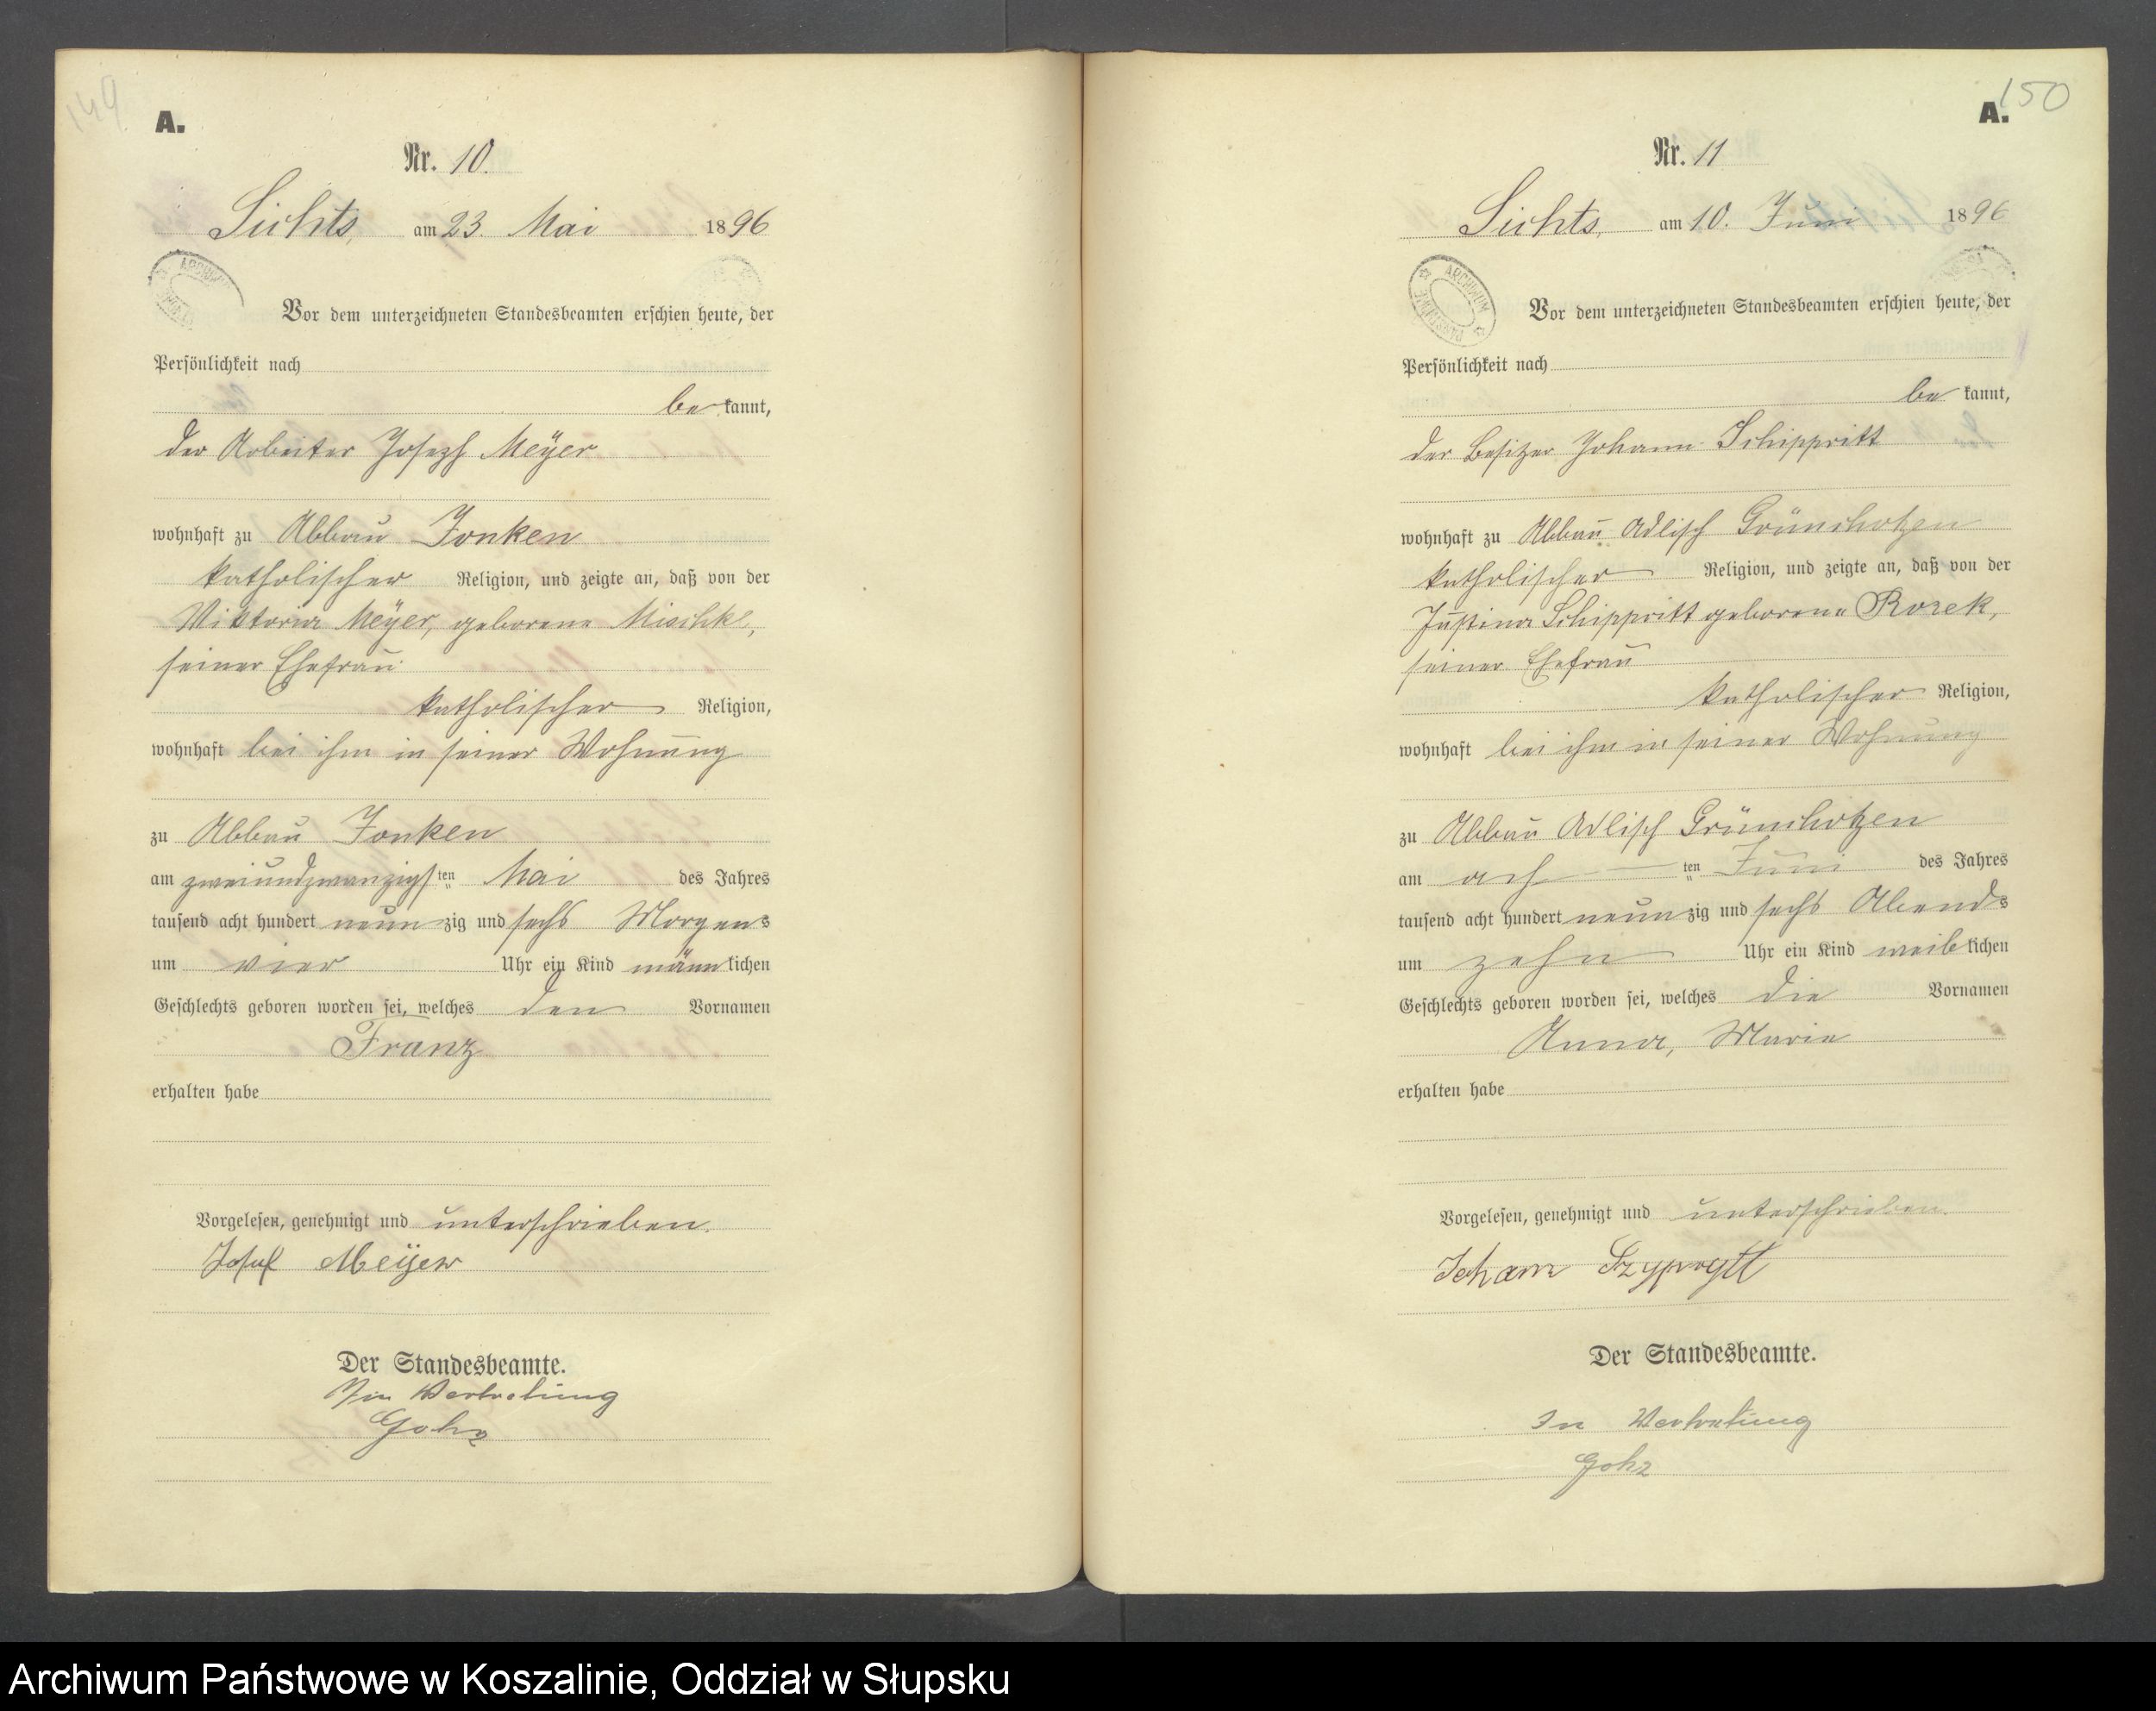 149
A.
Nr. 10.
Lichts, am 23. Mai 1896
ARCHIWUM
Vor dem unterzeichneten Standesbeamten erschien heute, der
Persönlichkeit nach
be kannt,
der Arbeiter Joseph Meÿer
wohnhaft zu Abbau Jonken
katholischer Religion, und zeigte an, daß von der
Viktoria Meÿer, geborene Mischke,
seiner Ehefrau
katholischer Religion,
wohnhaft bei ihm in seiner Wohnung
zu Abbau Jonken
am zweiundzwanzigsten Mai des Jahres
tausend acht hundert neunzig und sechs Morgens
um vier Uhr ein Kind männlichen
Geschlechts geboren worden sei, welches den Vornamen
Franz
erhalten habe
Vorgelesen, genehmigt und unterschrieben.
Josef Meijer
Der Standesbeamte.
In Vertretung
Gohz
150
A.
Nr. 11
Lichts, am 10. Juni 1896
ARCHIWUM PAŃSTWOWE
Vor dem unterzeichneten Standesbeamten erschien heute, der
Persönlichkeit nach
be kannt,
der Besitzer Johann Schippritt
wohnhaft zu Abbau Adlisch Grünchotzen
katholischer Religion, und zeigte an, daß von der
Justina Schippritt geborene Rozek,
seiner Ehefrau
katholischer Religion,
wohnhaft bei ihm in seiner Wohnung
zu Abbau Adlisch Grünchotzen
am achten Juni des Jahres
tausend acht hundert neunzig und sechs Abends
um zehn Uhr ein Kind weiblichen
Geschlechts geboren worden sei, welches die Vornamen
Anna, Marie
erhalten habe
Vorgelesen, genehmigt und unterschrieben.
Johann Szyprytt
Der Standesbeamte.
In Vertretung
Gohz
Archiwum Państwowe w Koszalinie, Oddział w Słupsku